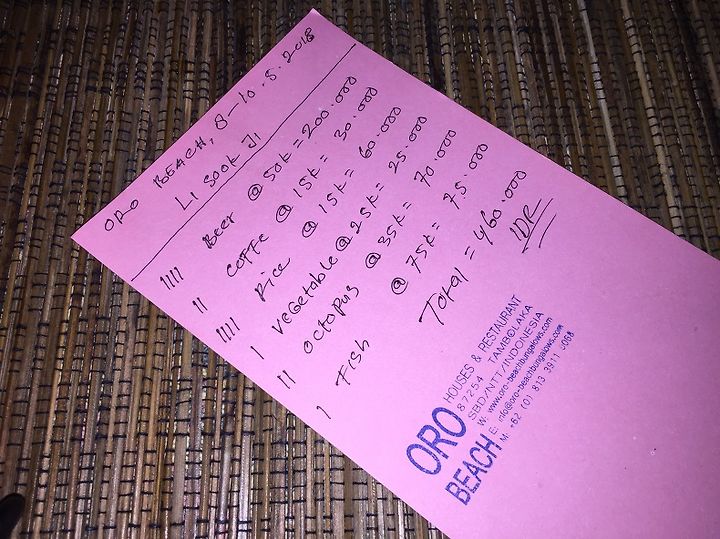 ORO BEACH, 8-10.5.2018
LI SOOK JI
IIII Beer @ 50k = 200.000
II COFFE @ 15k = 30.000
IIII Rice @ 15k = 60.000
I Vegetable @ 25k = 25.000
II Octopus @ 35k = 70.000
I Fish @ 75k = 75.000
Total = 460.000
IDR
ORO HOUSES & RESTAURANT
87254 TAMBOLAKA
SBD/NTT/INDONESIA
BEACH W: www.oro-beachbungalows.com
E: info@oro-beachbungalows.com
M: +62 (0) 813 3911 0068